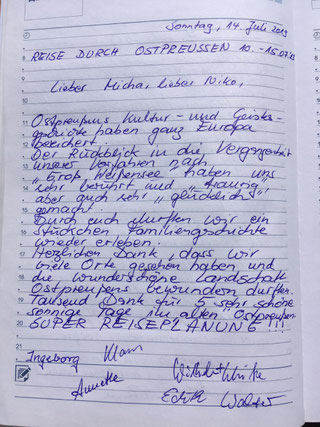 Sonntag, 14. Juli 2019
REISE DURCH OSTPREUSSEN 10.-15.07.19
Lieber Micha, lieber Niko,
Ostpreußens Kultur- und Geistes-
geschichte haben ganz Europa
bereichert.
Der Rückblick in die Vergangenheit
unserer Vorfahren nach
„Groß Weißensee" haben uns
sehr berührt und „traurig"
aber auch sehr „glücklich"
gemacht.
Durch euch durften wir ein
stückchen Familiengeschichte
wieder erleben.
Herzlichen Dank, dass wir
viele Orte gesehen haben und
die wunderschöne Landschaft
Ostpreußens bewundern durften.
Tausend Dank für 5 sehr schöne
sonnige Tage im „alten" Ostpreußen
SUPER REISEPLANUNG!!!
Ingeborg Klaus
Annette
Edith Walter
7
8
9
10
11
12
13
14
15
16
17
18
19
20
21